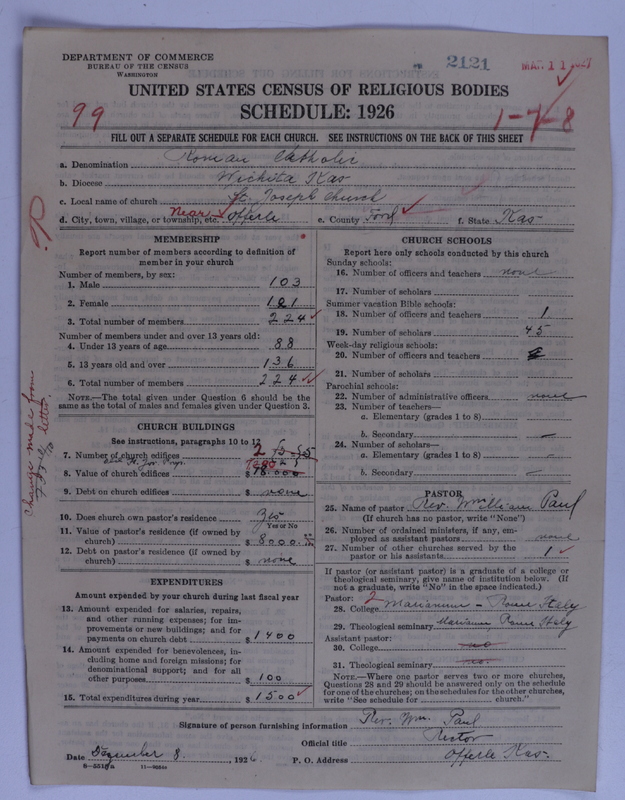 DEPARTMENT OF COMMERCE
BUREAU OF THE CENSUS
WASHINGTON
2121
MAR 11
UNITED STATES CENSUS OF RELIGIOUS BODIES
SCHEDULE: 1926
99
1-7-8
FILL OUT A SEPARATE SCHEDULE FOR EACH CHURCH. SEE INSTRUCTIONS ON THE BACK OF THIS SHEET
a. Denomination Roman Catholic
b. Diocese Wichita Kas
c. Local name of church St. Joseph Church
d. City, town, village, or township, etc. Near Offerle e. County Ford f. State Kas
MEMBERSHIP
Report number of members according to definition of
member in your church
Number of members, by sex:
1. Male 103
2. Female 121
3. Total number of members 224
Number of members under and over 13 years old:
4. Under 13 years of age 88
5. 13 years old and over 136
6. Total number of members 224
NOTE.—The total given under Question 6 should be the
same as the total of males and females given under Question 3.
CHURCH BUILDINGS
See instructions, paragraphs 10 to 12
7. Number of church edifices
8. Value of church edifices $
9. Debt on church edifices $ none
10. Does church own pastor's residence Yes
Yes or No
11. Value of pastor's residence (if owned by
church) $ 8000.
12. Debt on pastor's residence (if owned by
church) $ none
EXPENDITURES
Amount expended by your church during last fiscal year
13. Amount expended for salaries, repairs,
and other running expenses; for im-
provements or new buildings; and for
payments on church debt $ 1400
14. Amount expended for benevolences, in-
cluding home and foreign missions; for
denominational support; and for all
other purposes $ 100
15. Total expenditures during year $ 1500
Change made from
letter
CHURCH SCHOOLS
Report here only schools conducted by this church
Sunday schools:
16. Number of officers and teachers none
17. Number of scholars
Summer vacation Bible schools:
18. Number of officers and teachers 1
19. Number of scholars 45
Week-day religious schools:
20. Number of officers and teachers
21. Number of scholars
Parochial schools:
22. Number of administrative officers none
23. Number of teachers—
a. Elementary (grades 1 to 8)
b. Secondary —
24. Number of scholars—
a. Elementary (grades 1 to 8) —
b. Secondary —
PASTOR
25. Name of pastor Rev. William Paul
(If church has no pastor, write "None")
26. Number of ordained ministers, if any, em-
ployed as assistant pastors none
27. Number of other churches served by the
pastor or his assistants 1
If pastor (or assistant pastor) is a graduate of a college or
theological seminary, give name of institution below. (If
not a graduate, write "No" in the space indicated.)
Pastor: 2
28. College Mariannum - Rome Italy
29. Theological seminary Mariannum Rome Italy
Assistant pastor:
30. College no
31. Theological seminary no
NOTE.—Where one pastor serves two or more churches,
Questions 28 and 29 should be answered only on the schedule
for one of the churches; on the schedules for the other churches,
write "See schedule for church."
Signature of person furnishing information Rev. Wm. Paul
Official title Rector
Date December 8, 1926 P. O. Address Offerle Kas.
8-5515a 11-90544